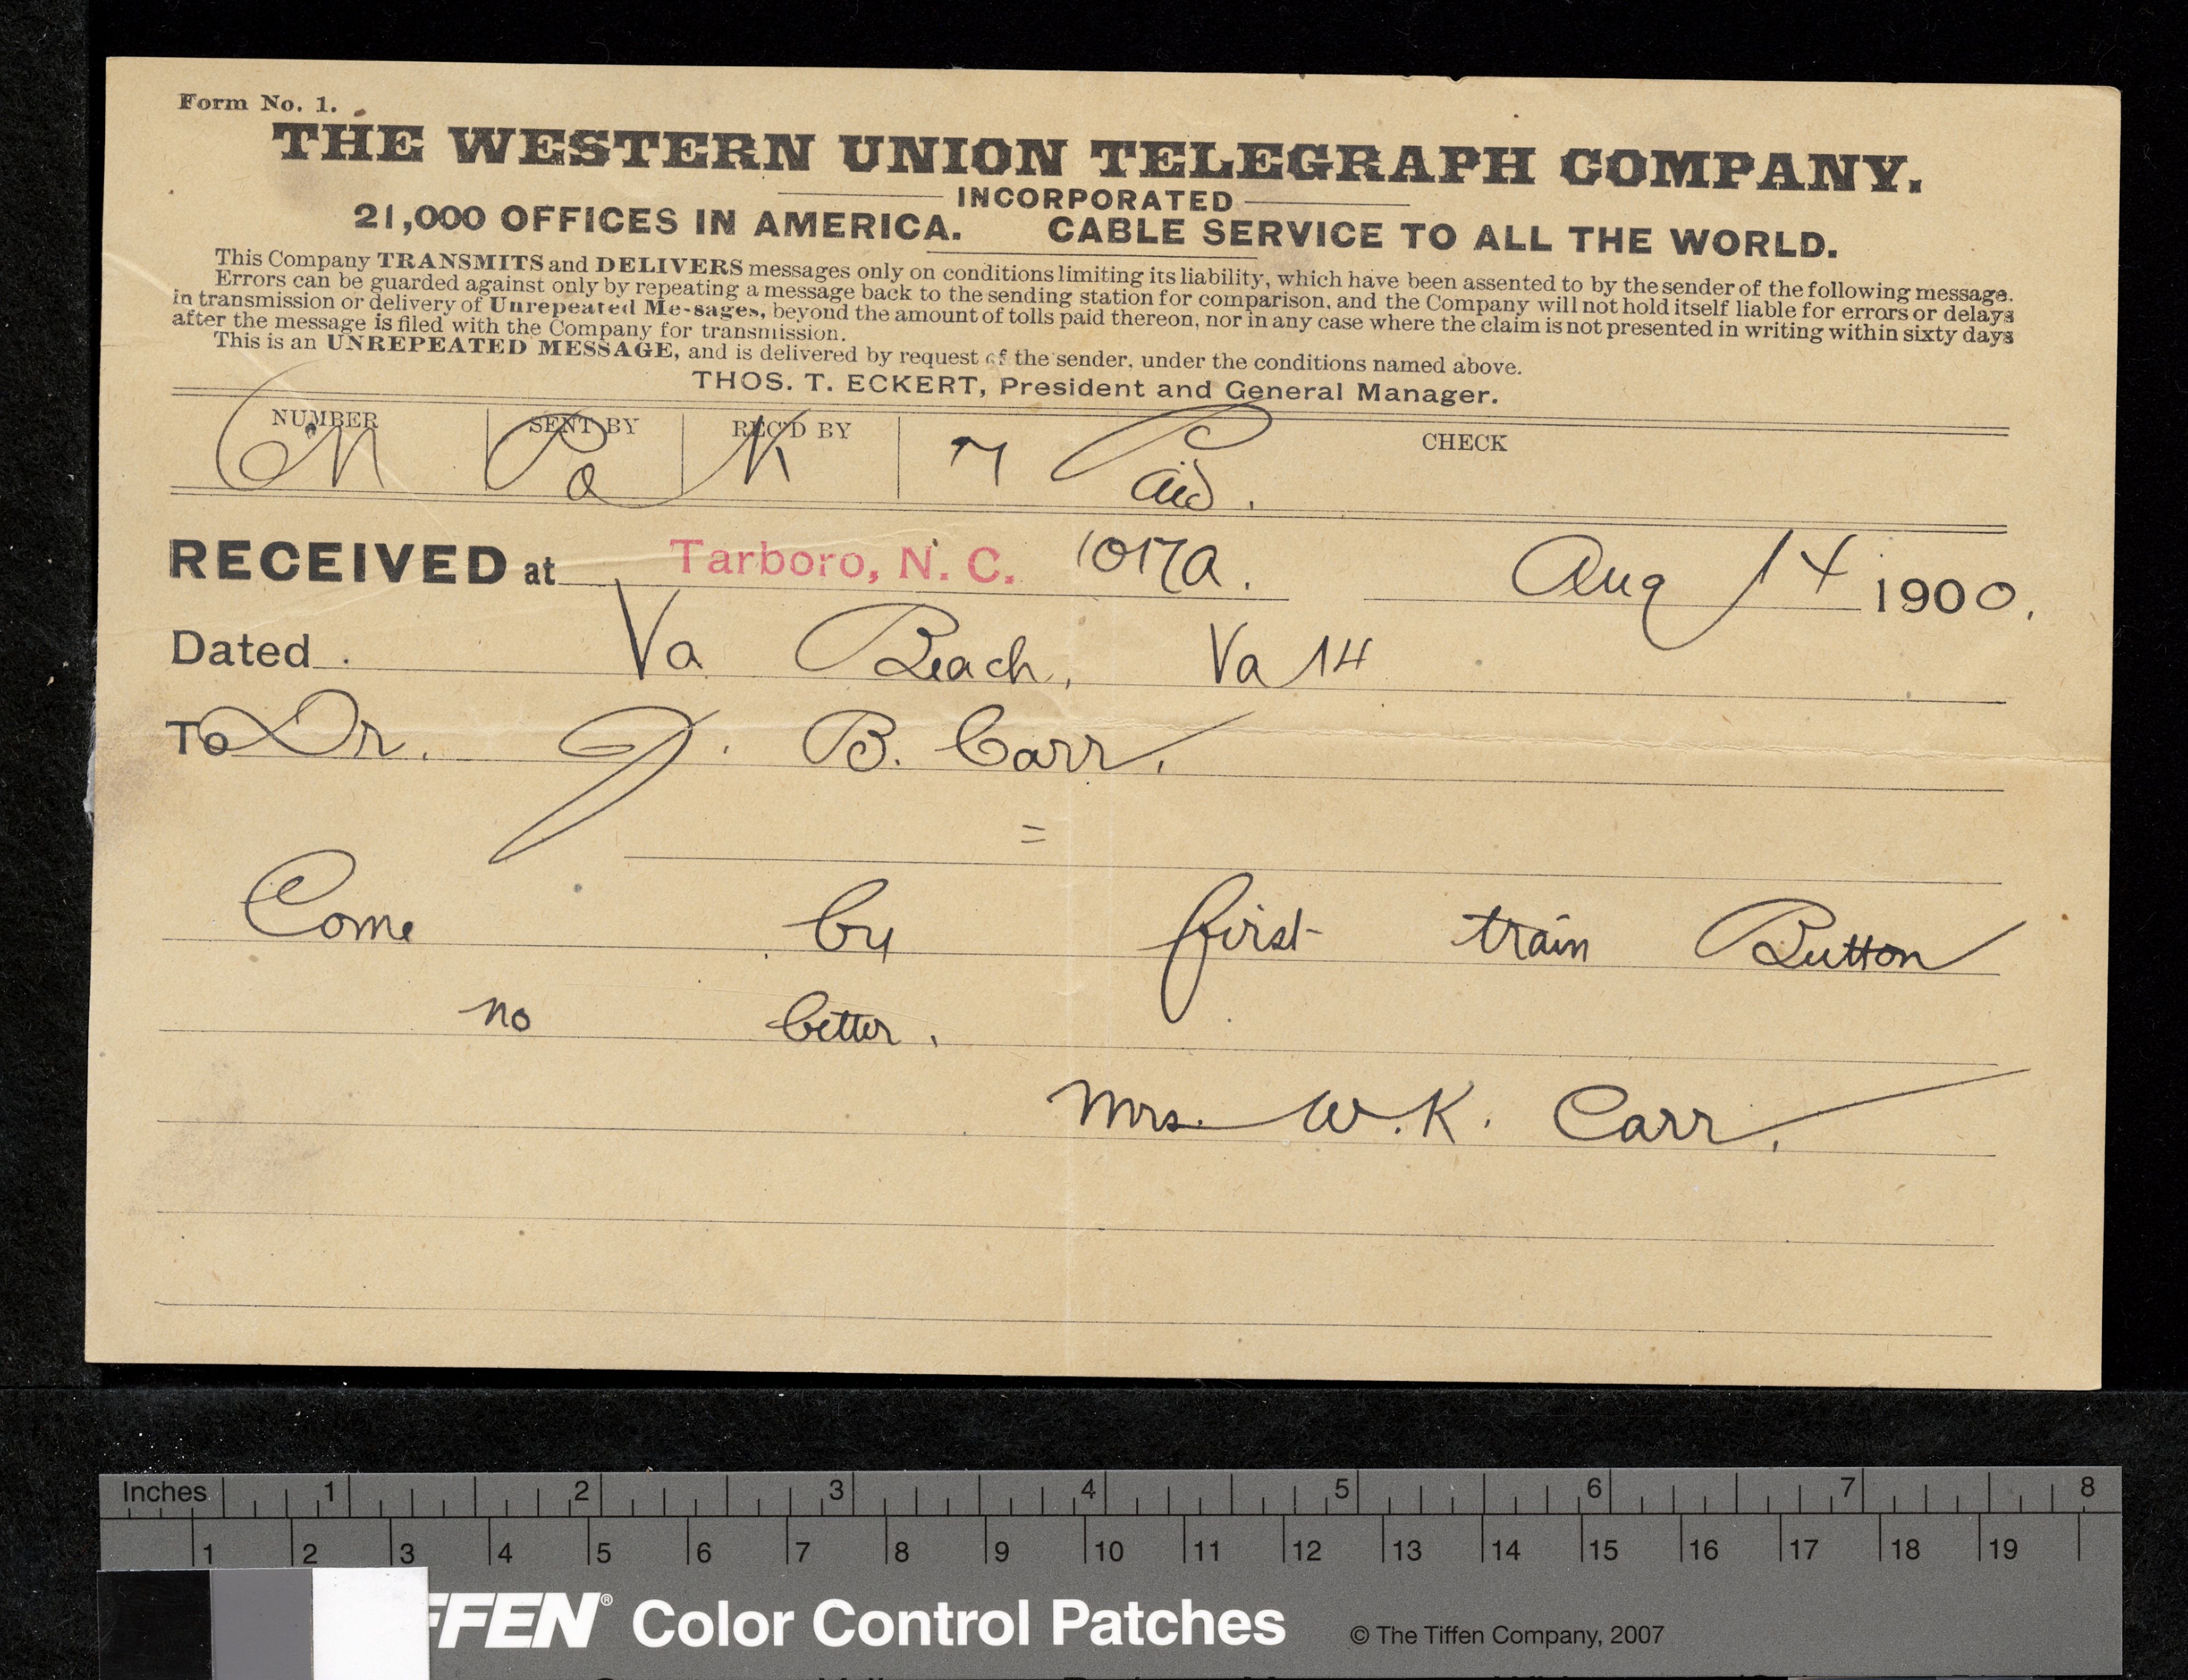 Form No. 1.
THE WESTERN UNION TELEGRAPH COMPANY.
INCORPORATED
21,000 OFFICES IN AMERICA. CABLE SERVICE TO ALL THE WORLD.
This Company TRANSMITS and DELIVERS messages only on conditions limiting its liability, which have been assented to by the sender of the following message.
Errors can be guarded against only by repeating a message back to the sending station for comparison, and the Company will not hold itself liable for errors or delays
in transmission or delivery of Unrepeated Me-sages, beyond the amount of tolls paid thereon, nor in any case where the claim is not presented in writing within sixty days
after the message is filed with the Company for transmission.
This is an UNREPEATED MESSAGE, and is delivered by request of the sender, under the conditions named above.
THOS. T. ECKERT, President and General Manager.
NUMBER SENT BY REC'D BY CHECK
Po K 7 Paid.
RECEIVED at Tarboro, N. C. 1017a. Aug 14 1900.
Dated Va Beach, Va 14
To Dr. J. B. Carr.
=
Come by first train Button
no better.
Mrs. W. K. Carr.
Inches 1 2 3 4 5 6 7 8
1 2 3 4 5 6 7 8 9 10 11 12 13 14 15 16 17 18 19
FFEN® Color Control Patches © The Tiffen Company, 2007